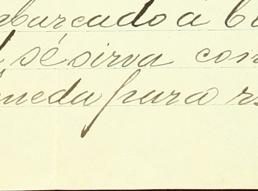 mbarcado á b
sé sirva con
ueda para r